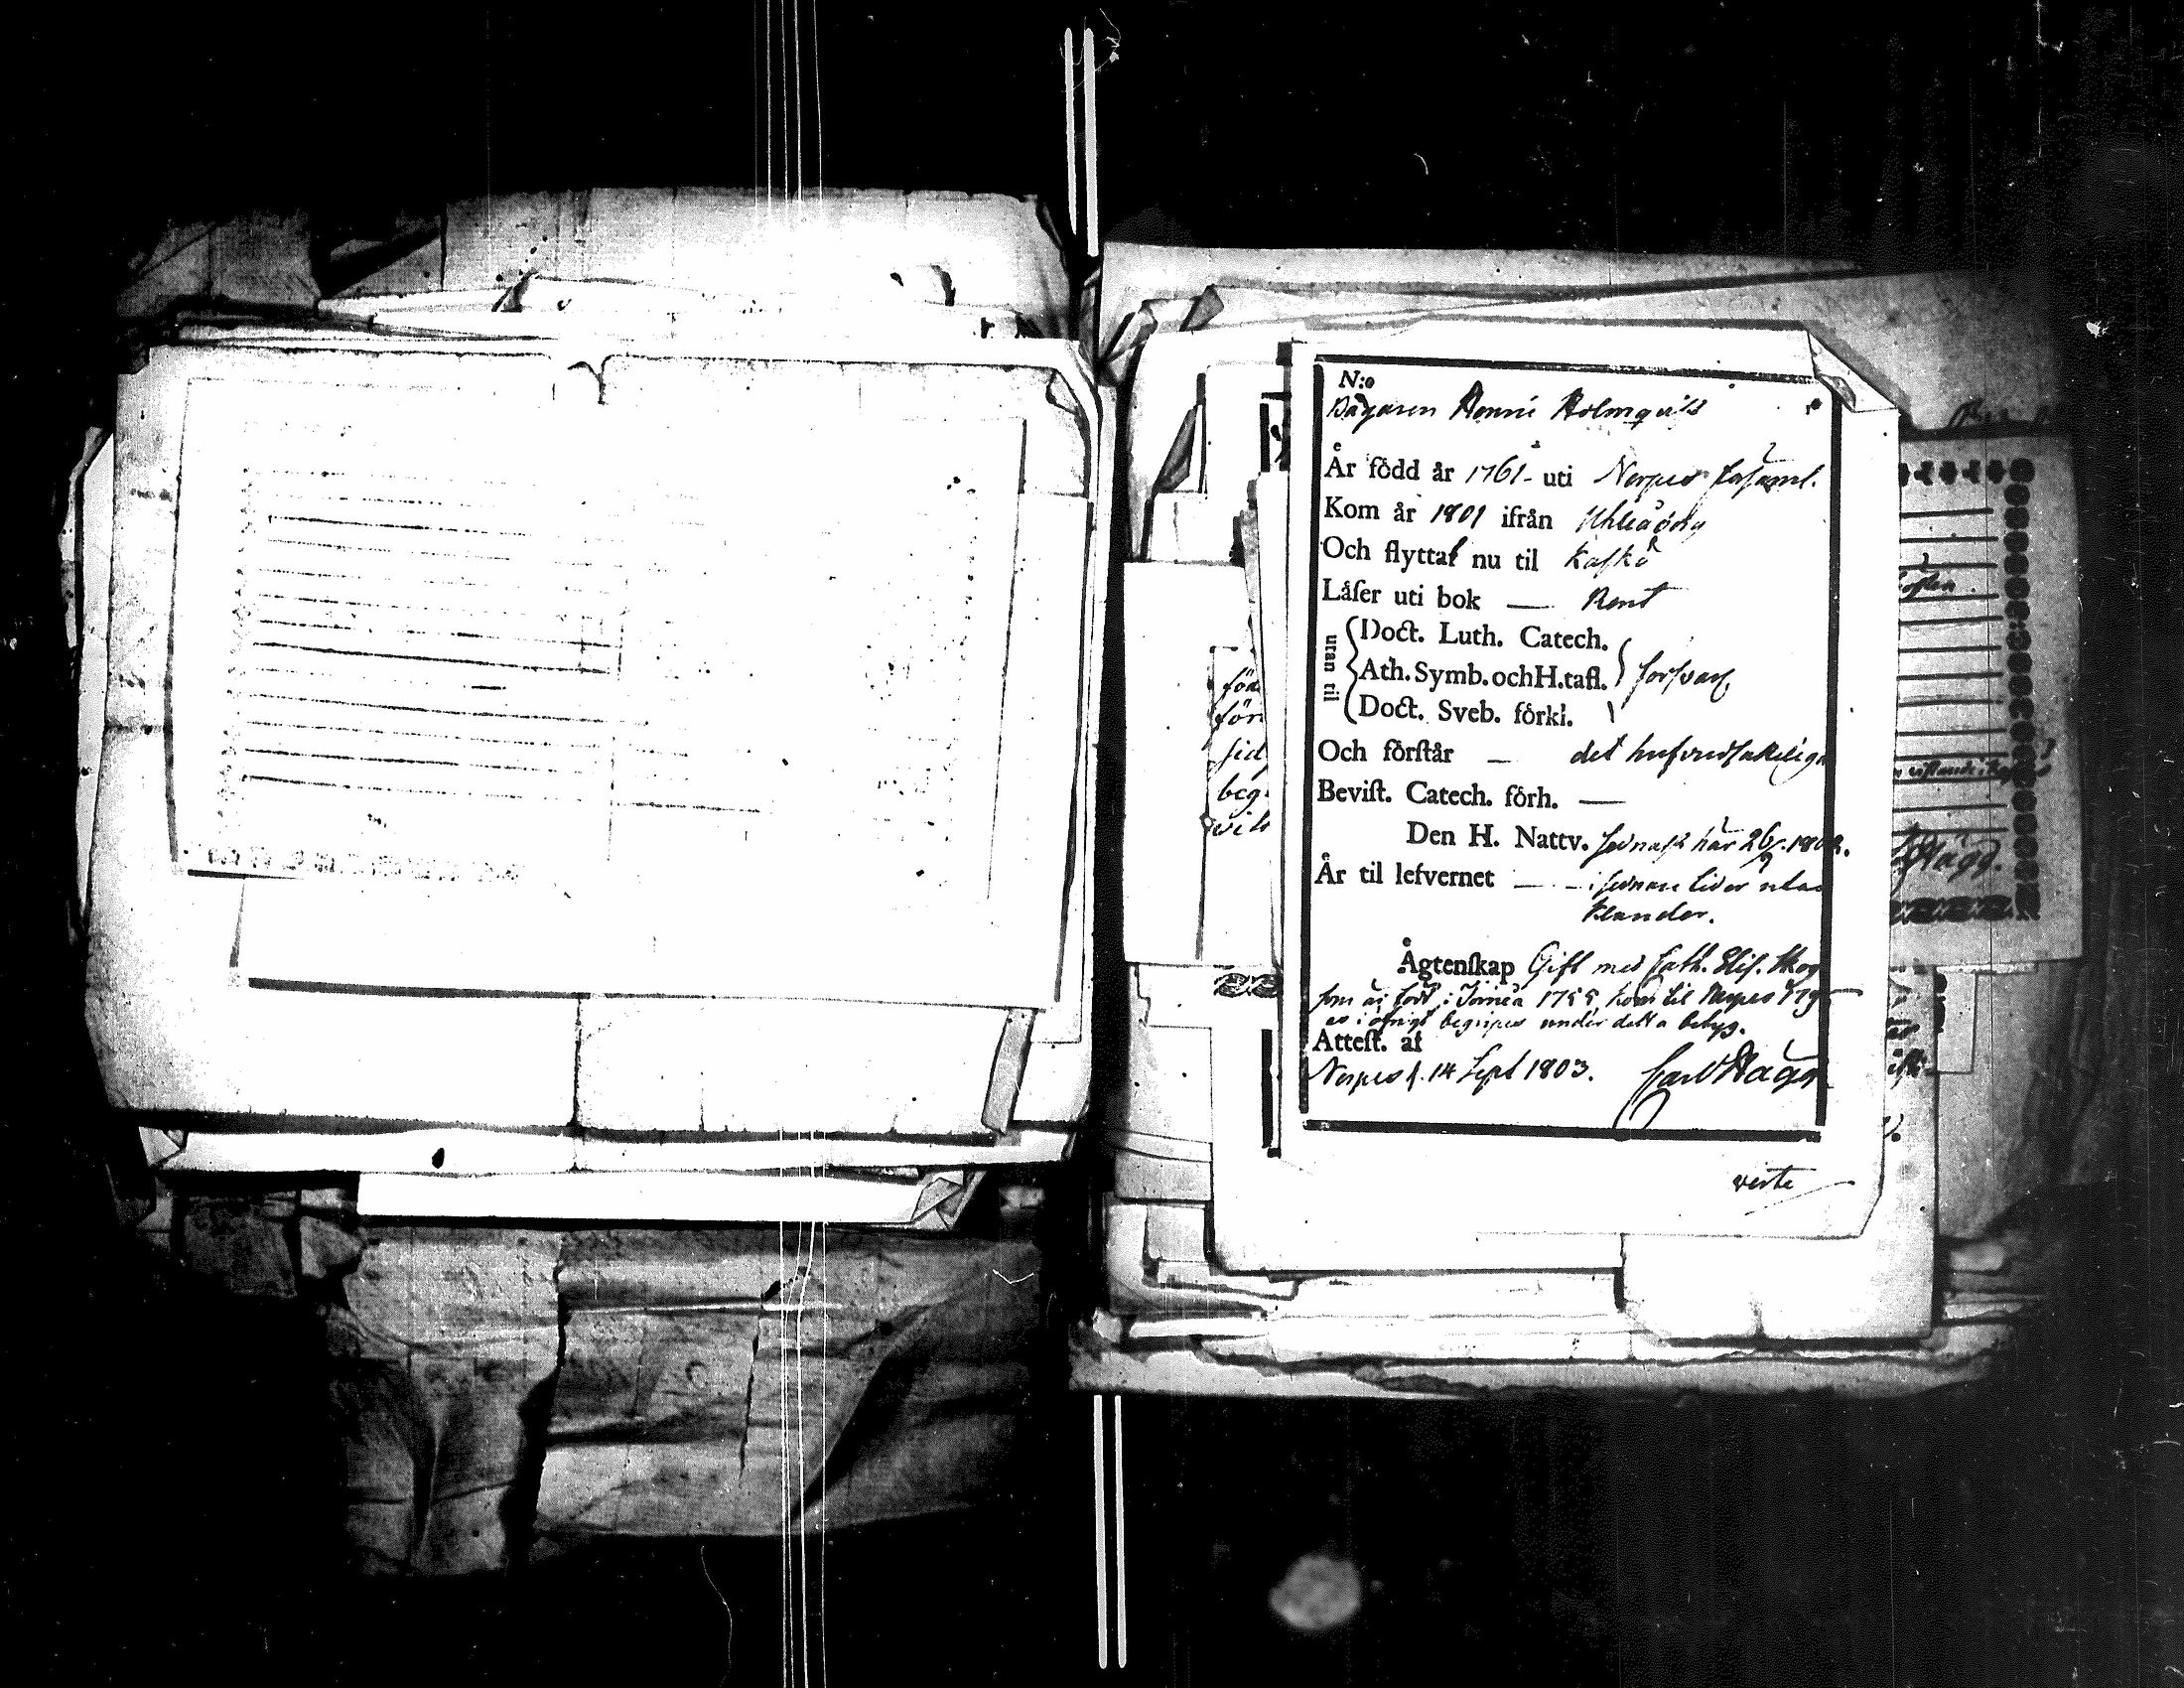 N:o
Bagaren Henric Holmqvist
År född år 1761 uti Nerpes församl.
Kom år 1801 ifrån Uhleåborg
Och flyttar nu til Kaskö
Låser uti bok — Rent
utan til
Doct. Luth. Catech.
Ath. Symb. och H. tafl. försvarl.
Doct. Sveb. förkl.
Och förstår — det hufvudsakeliga
Bevist. Catech. förh. —
Den H. Nattv. sednast här 26/9 1802.
År til lefvernet — i sednare tider utan
klander.
Ägtenskap Gift med Cath. Elis. Skog
som är född i Torneå 1755, kom til Nerpes
i öfrigt begripes under detta betyg.
Attest. af
Nerpes d. 14 Sept 1803. Carl Hägg
verte
föd
för
sid
beg
Hägg.